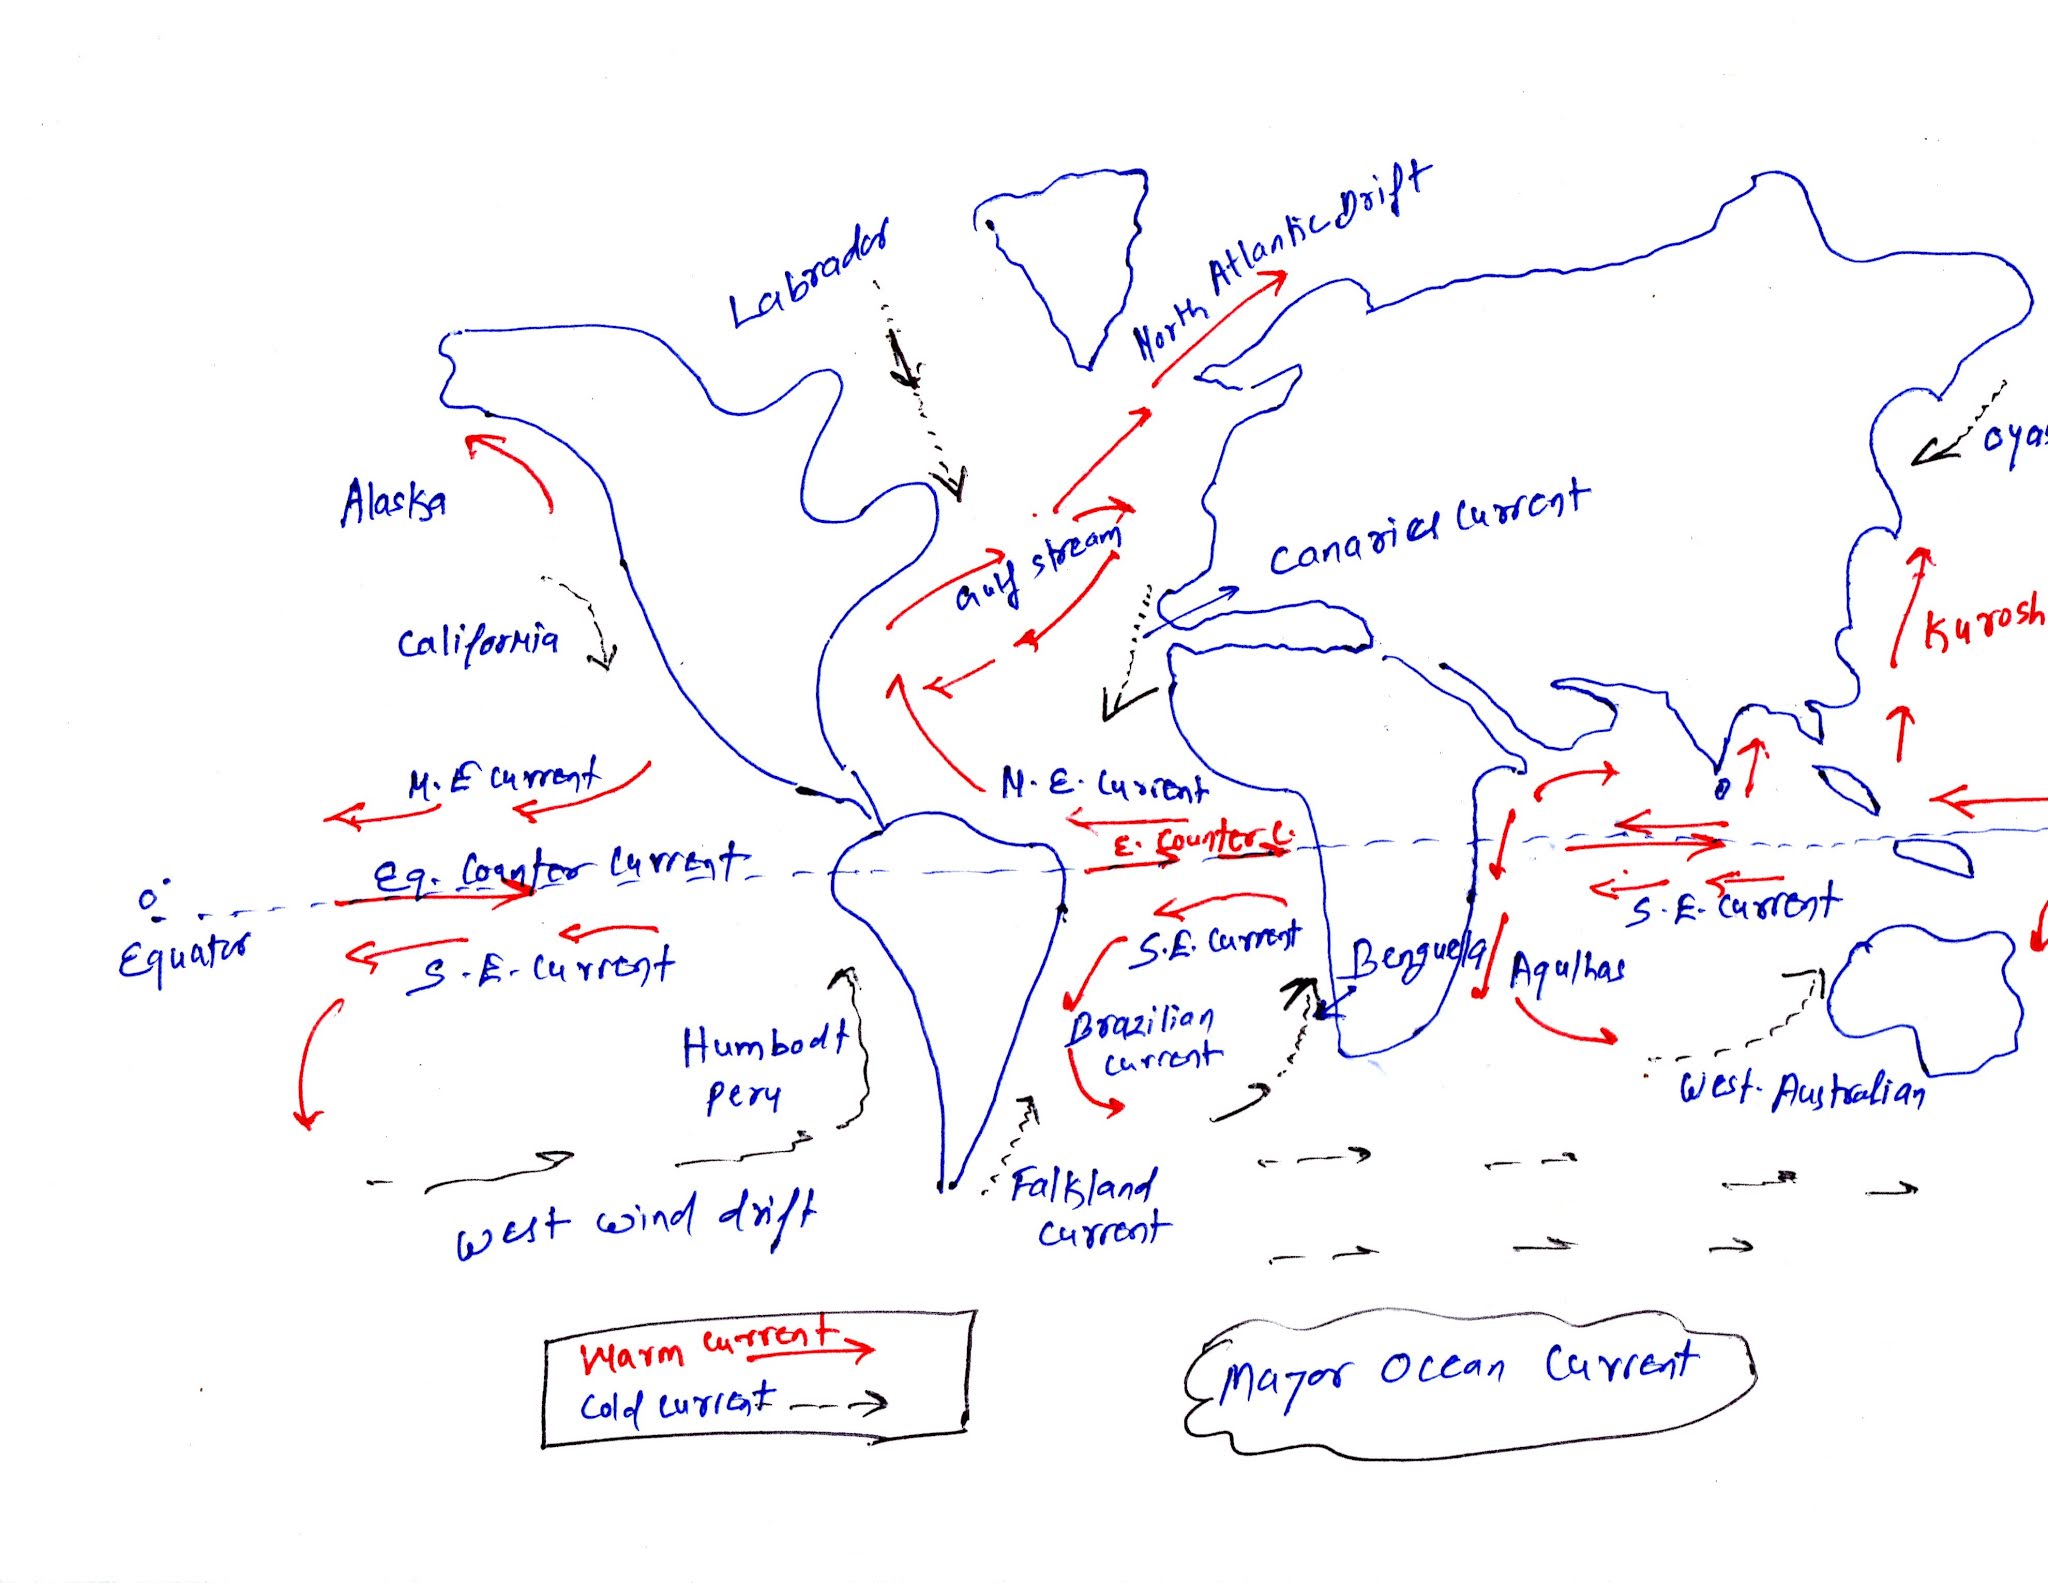 Labrador
North Atlantic Drift
Alaska
Gulf stream
Canaries Current
Oyas
California
Kurosh
N. E Current
N. E. Current
E. Counter C.
Eq. Counter Current
0°
Equator
S. E. Current
S. E. Current
S. E. Current
Benguella
Agulhas
Brazilian
Current
Humbodt
Peru
West. Australian
Falkland
Current
West wind drift
Warm Current
Cold Current
Major Ocean Current